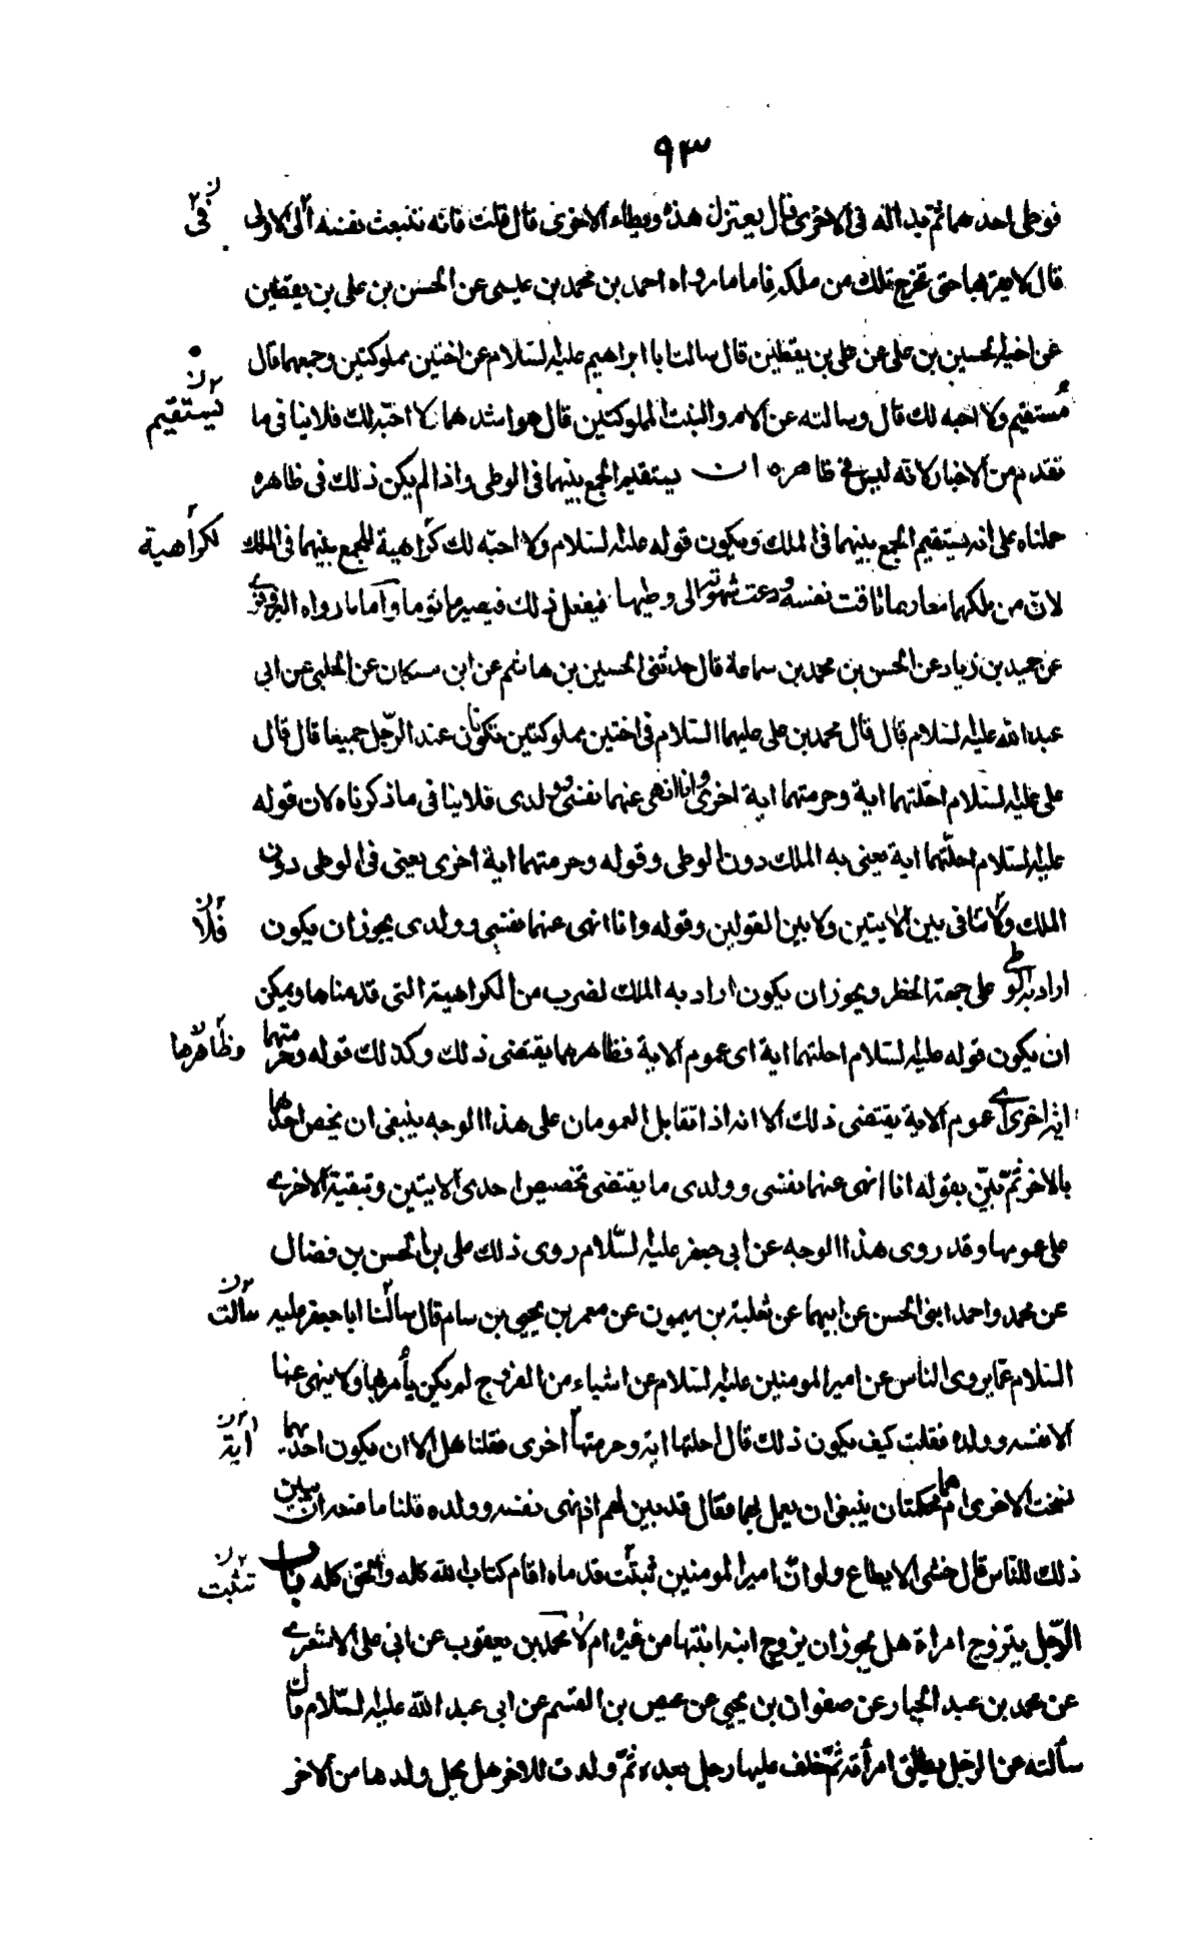 ٩٣
فوطى احدهما ثم بدا له فى الاخرى قال يعتزل هذه ويطاء الاخرى قال قلت فانه تنبعث نفسه الى الاولى
فى ٢ ن
قال لا يقربها حتى تخرج تلك من ملكه فاما ما رواه احمد بن محمد بن عيسى عن الحسن بن على بن يقطين
عن اخيه الحسين بن على عن على بن يقطين قال سالت ابا ابراهيم عليه السلام عن اختين مملوكتين وجمعهما قال
مستقيم ولا احبه لك قال وسالته عن الام والبنت المملوكتين قال هو اشدهما لا احبه لك فلا ينافى ما
يستقيم ٢ ن
تقدم من الاخبار لانه ليس فى ظاهره ان يستقيم الجمع بينهما فى الوطى واذا لم يكن ذلك فى ظاهره
حملناه على انه يستقيم الجمع بينهما فى الملك ويكون قوله عليه السلام ولا احبه لك كراهية للجمع بينهما فى الملك
لكراهية ٢
لان من ملكهما معا ربما تاقت نفسه ودعت شهوته الى وطيهما فيفعل ذلك فيصير ماثوما واما ما رواه البزوفرى
عن حميد بن زياد عن الحسن بن محمد بن سماعة قال حدثنى الحسين بن هاشم عن ابن مسكان عن الحلبى عن ابى
عبد الله عليه السلام قال قال محمد بن على عليهما السلام فى اختين مملوكتين تكونان عند الرجل جميعا قال قال
على عليه السلام احلتهما اية وحرمتهما اية اخرى وانا انهى عنهما نفسى وولدى فلا ينافى ما ذكرناه لان قوله
عليه السلام احلتهما اية يعنى به الملك دون الوطى وقوله وحرمتهما اية اخرى يعنى فى الوطى دون
الملك ولا تنافى بين الايتين ولا بين القولين وقوله وانا انهى عنهما نفسى وولدى يجوز ان يكون
فلا ٢ ن
اراد به الوطى على جهة الحظر ويجوز ان يكون اراد به الملك لضرب من الكراهية التى قدمناها ويمكن
ان يكون قوله عليه السلام احلتهما اية اى عموم الاية فظاهرهما يقتضى ذلك وكذلك قوله وحرمتهما
وظاهرها ٢ ن
اية اخرى اى عموم الاية يقتضى ذلك الا انه اذا تقابل العمومان على هذا الوجه ينبغى ان يخص احدهما
بالاخر ثم تبين بقوله انا انهى عنهما نفسى وولدى ما يقتضى تخصيص احدى الايتين وتبقية الاخرى
على عمومها وقد روى هذا الوجه عن ابى جعفر عليه السلام روى ذلك على بن الحسن بن فضال
عن محمد واحمد ابنى الحسن عن ابيهما عن ثعلبة بن ميمون عن معمر بن يحيى بن سام قال سالنا ابا جعفر عليه
سألت ٢ ن
السلام عما يروى الناس عن امير المومنين عليه السلام عن اشياء من الفروج لم يكن يأمر بها ولا ينهى عنها
الا نفسه وولده فقلت كيف يكون ذلك قال احلتها اية وحرمتها اخرى فقلنا هل الا ان يكون احديهما
اية ٢ ن
نسخت الاخرى ام هما محكمتان ينبغى ان يعمل بهما فقال قد بين لهم اذ نهى نفسه وولده قلنا ما منعه ان يبين
ذلك للناس قال خشى الا يطاع ولو ان امير المومنين ثبتت قدماه اقام كتاب الله كله والحق كله باب
تثبت ٢ ن
الرجل يتزوج امراة هل يجوز ان يزوج ابنه ابنتها من غيره ام لا محمد بن يعقوب عن ابى على الاشعرى
عن محمد بن عبد الجبار عن صفوان بن يحيى عن عيص بن القسم عن ابى عبد الله عليه السلام قال
سألته عن الرجل يطلق امرأته ثم خلف عليها رجل بعده ثم ولدت للاخر هل يحل ولدها من الاخر